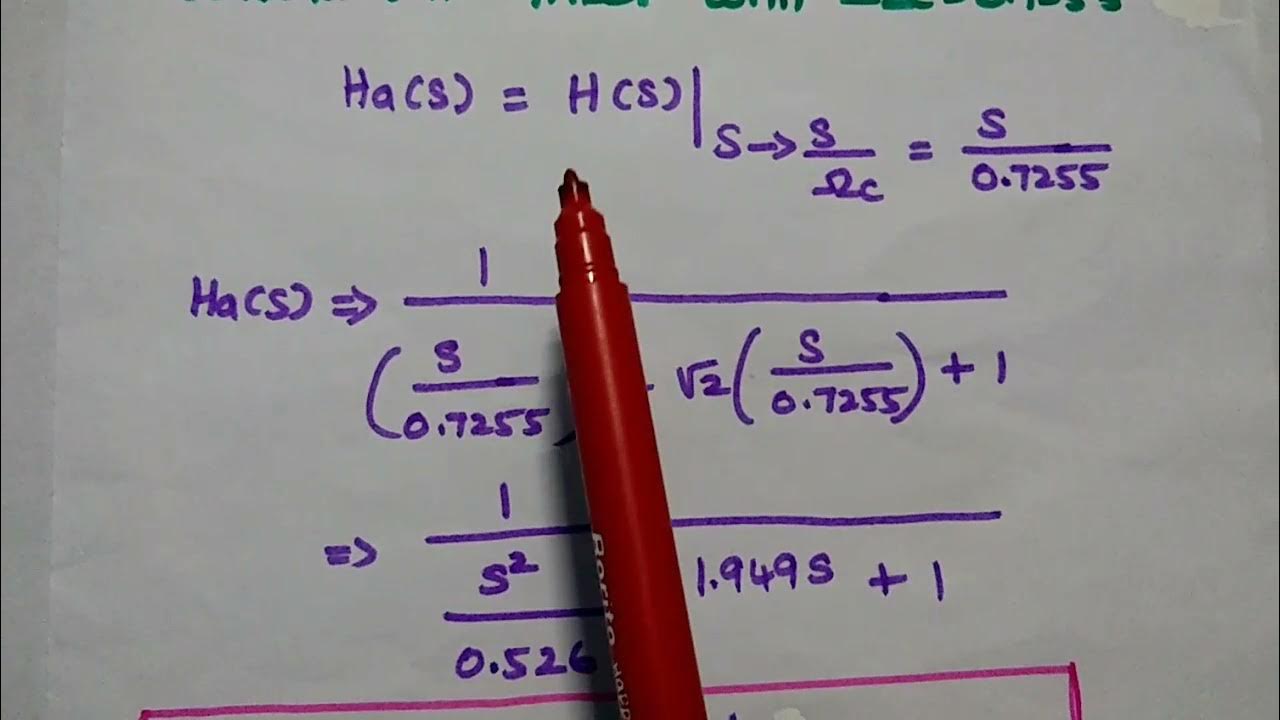 Ha(S) = H(S)| S→ S/Ωc = S/0.7255
Ha(S) ⇒ 1
(S/0.7255) √2 (S/0.7255) + 1
⇒ 1
S² 1.949S + 1
0.526